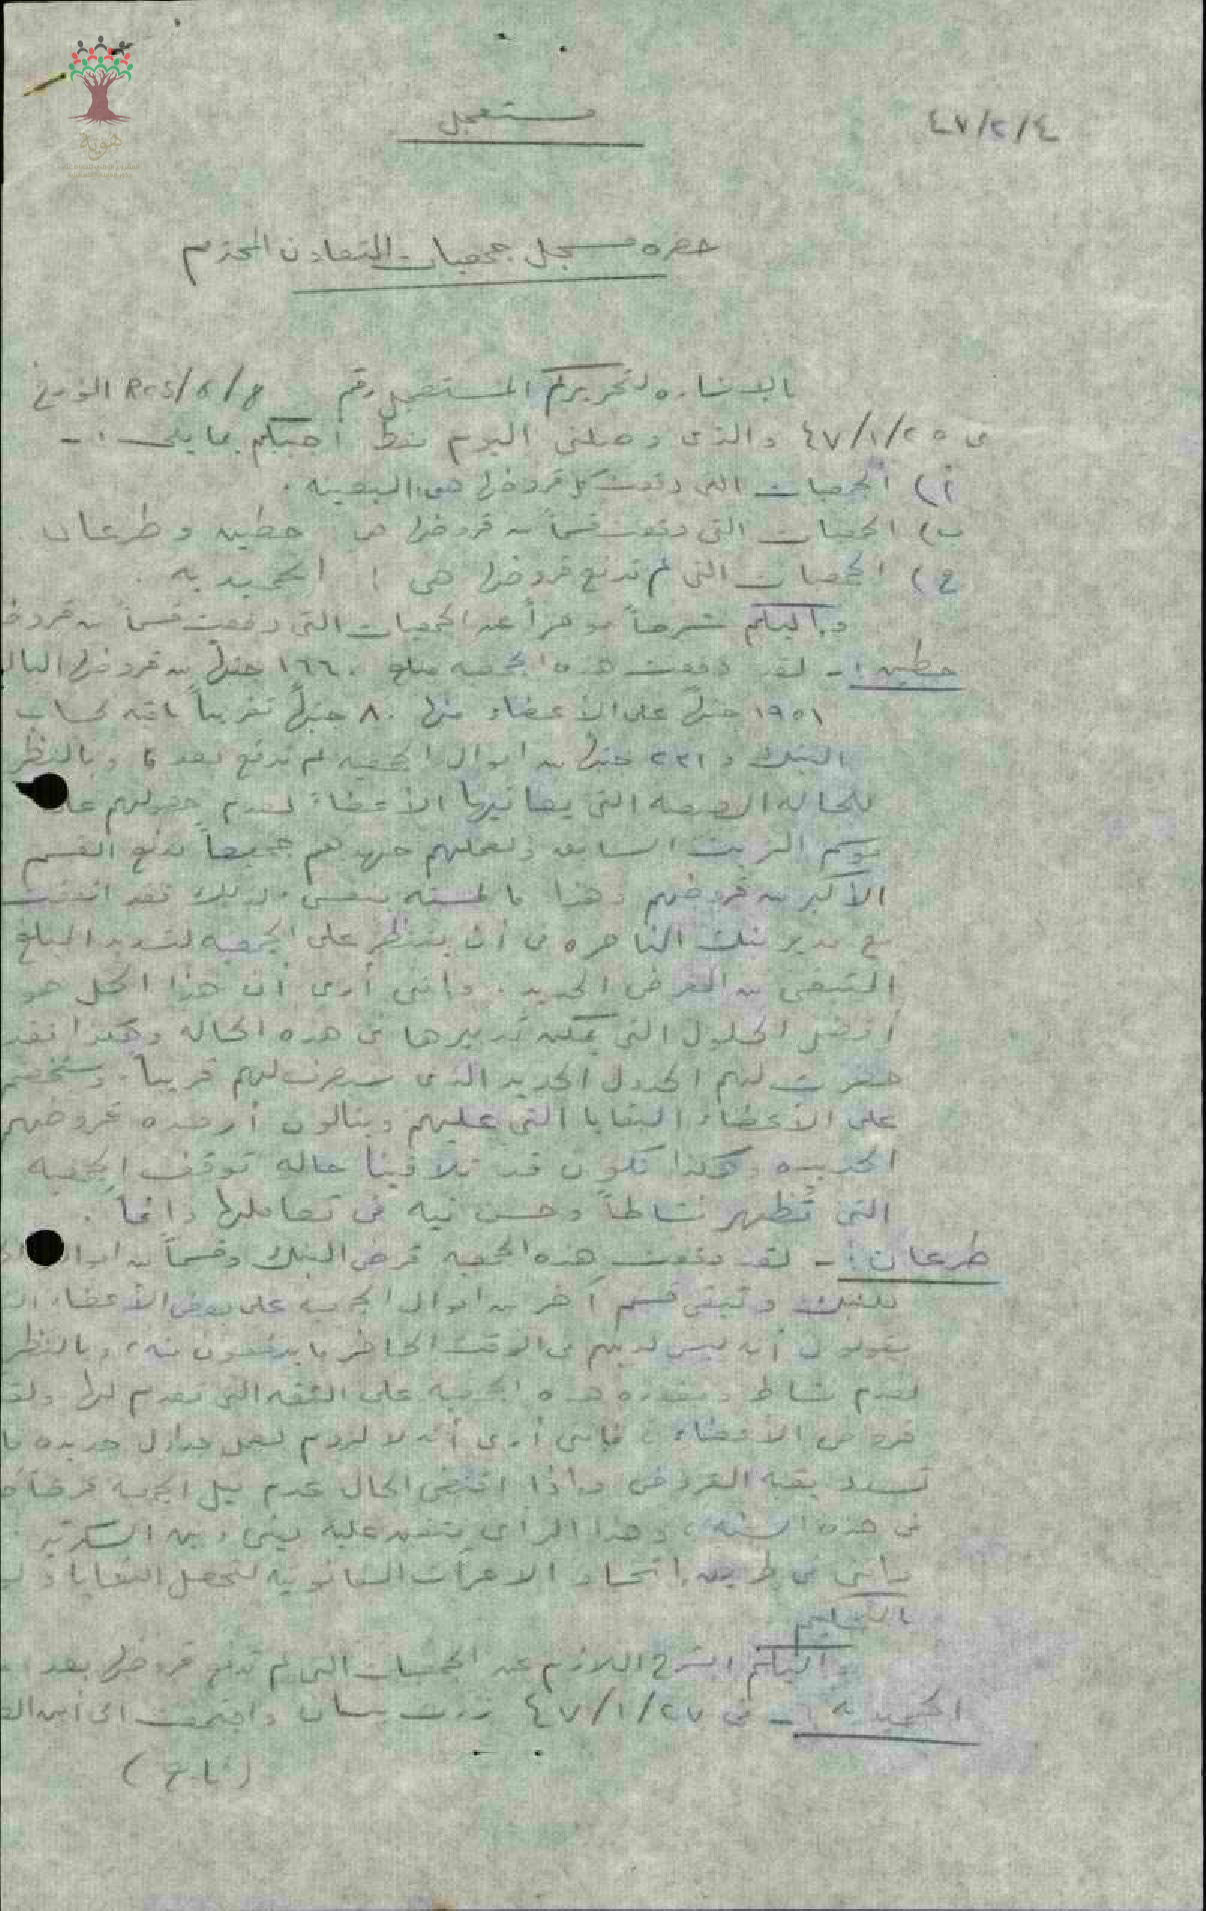 هوية
٤٧/٢/٤
مستعجل
حضرة مسجل جمعيات التعاون المحترم
بالاشاره لتحريركم المستعجل رقم المؤرخ
في ٤٧/١/٢٥ والذي وصلني اليوم فقط أجيبكم بما يلي :-
أ) الجمعيات التي دفعت كل قروضها هي: البعينه .
ب) الجمعيات التي دفعت قسماً من قروضها هي حطين و طرعان
ج) الجمعيات التي لم تدفع قروضها هي : الحميديه .
واليكم شرحاً موجزاً عن الجمعيات التي دفعت قسماً من
حطين :- لقد دفعت هذه الجمعيه مبلغ ١٦٦٠ جنيهاً من قروضها
١٩٥١ جنيهاً على الأعضاء منها ٨٠ جنيهاً تقريباً باقيه لحساب
البنك و ٢٢١ جنيهاً من اموال الجمعيه لم تدفع بعد ، وبالنظر
للحاله الصعبه التي يعانيها الأعضاء لعدم حصولهم على
موسم الزيت السابق ولعملهم جهدهم جميعاً بدفع القسم
الأكبر من قروضهم وهذا ما لمسته بنفسي ولذلك فقد اتفقت
مع مدير بنك الناصره في أن ينتظر على الجمعيه لتسديد المبلغ
المتبقي من القرض الجديد . وانني أرى أن هذا الحل هو
أفضل الحلول التي يمكن تدبيرها في هذه الحاله وهكذا فقد
حضرت لهم الجدول الجديد الذي سيصرف لهم قريباً. وستخصم
على الأعضاء البقايا التي عليهم وينالون أرصدة قروضهم
الجديده وهكذا نكون قد تلافينا حالة توقف الجمعيه
التي تُظهر نشاطاً وحسن نيه في تعاملها دائماً .
طرعان :- لقد دفعت هذه الجمعيه قرض البنك وقسماً من
للبنك وتبقى قسم آخر من اموال الجمعيه على بعض الأعضاء
يقولون أنه ليس لديهم في الوقت الحاضر ما يدفعون منه ، وبالنظر
لعدم نشاط هذه الجمعيه على
قروض الأعضاء ، فانني أرى أنه لا لزوم لعمل جداول جديده
تسدد بقية القروض واذا اقتضى الحال عدم نيل الجمعيه
في هذه السنه ، وهذا الرأي متفق عليه بيني وبين السكرتير
وانني في طريق اتخاذ الاجراءات القانونيه لتحصيل البقايا
واليكم الشرح اللازم عن الجمعيات التي لم تدفع قروضها بعد
الحميديه :- في ٤٧/١/٢٧ زرت بيسان واجتمعت الى